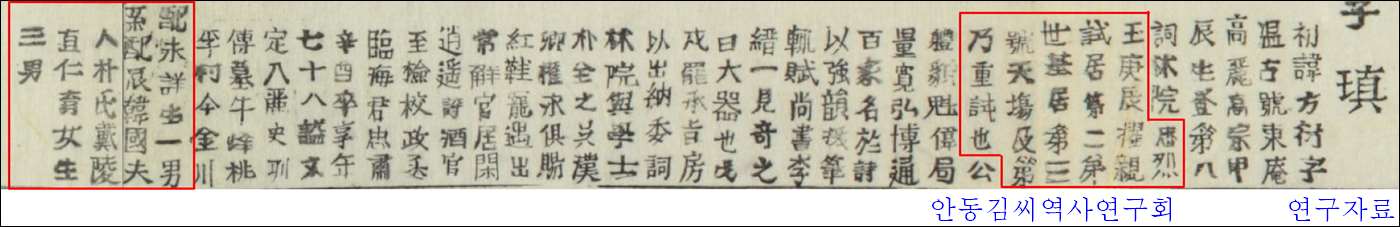 李瑱
初諱方衍字
温古號東庵
高麗高宗甲
辰生登第八
詞林院忠烈
王庚辰擢親
試居第二弟
世基居第三
號天場及第
乃重試也公
體貌魁偉局
量寬弘博通
百家名於詩
以強韻援筆
輒賦尚書李
縉一見奇之
曰大器也戊
戌罷承旨房
以出納委詞
林院與學士
朴全之吳漢
卿權永俱賜
紅鞓寵遇出
常解官居閑
逍遥詩酒官
至檢校政丞
臨海君忠肅
辛酉卒享年
七十八謚文
定入麗史列
傳墓牛峰桃
李村今金川
配未詳生一男
系配辰韓國夫
人朴氏戴陵
直仁育女生
三男
안동김씨역사연구회 연구자료